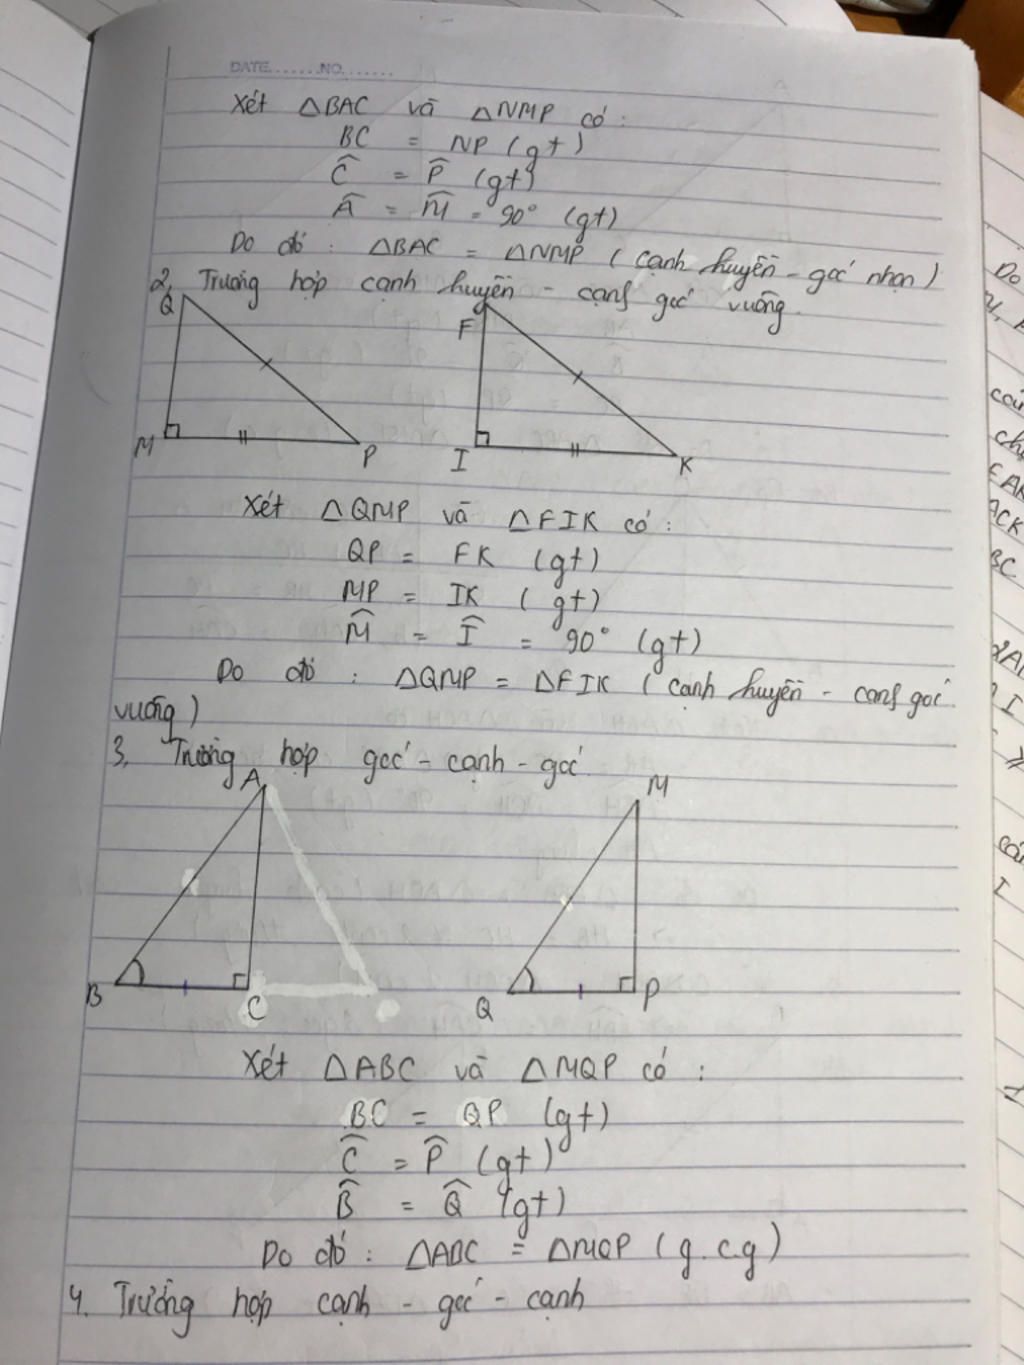 DATE.......NO........
Xét △BAC và △NMP có :
BC = NP (gt)
Ĉ = P̂ (gt)
Â = M̂ = 90° (gt)
Do đó : △BAC = △NMP ( cạnh huyền - góc nhọn )
2, Trường hợp cạnh huyền - cạnh góc vuông.
Q
F
M
P
I
K
Xét △QMP và △FIK có :
QP = FK (gt)
MP = IK (gt)
M̂ = Î = 90° (gt)
Do đó : △QMP = △FIK ( cạnh huyền - cạnh góc
vuông )
3, Trường hợp góc - cạnh - góc
A
M
B
C
Q
P
Xét △ABC và △MQP có :
BC = QP (gt)
Ĉ = P̂ (gt)
B̂ = Q̂ (gt)
Do đó : △ABC = △MQP ( g.c.g )
4. Trường hợp cạnh - góc - cạnh
Do
ACK
BC
I